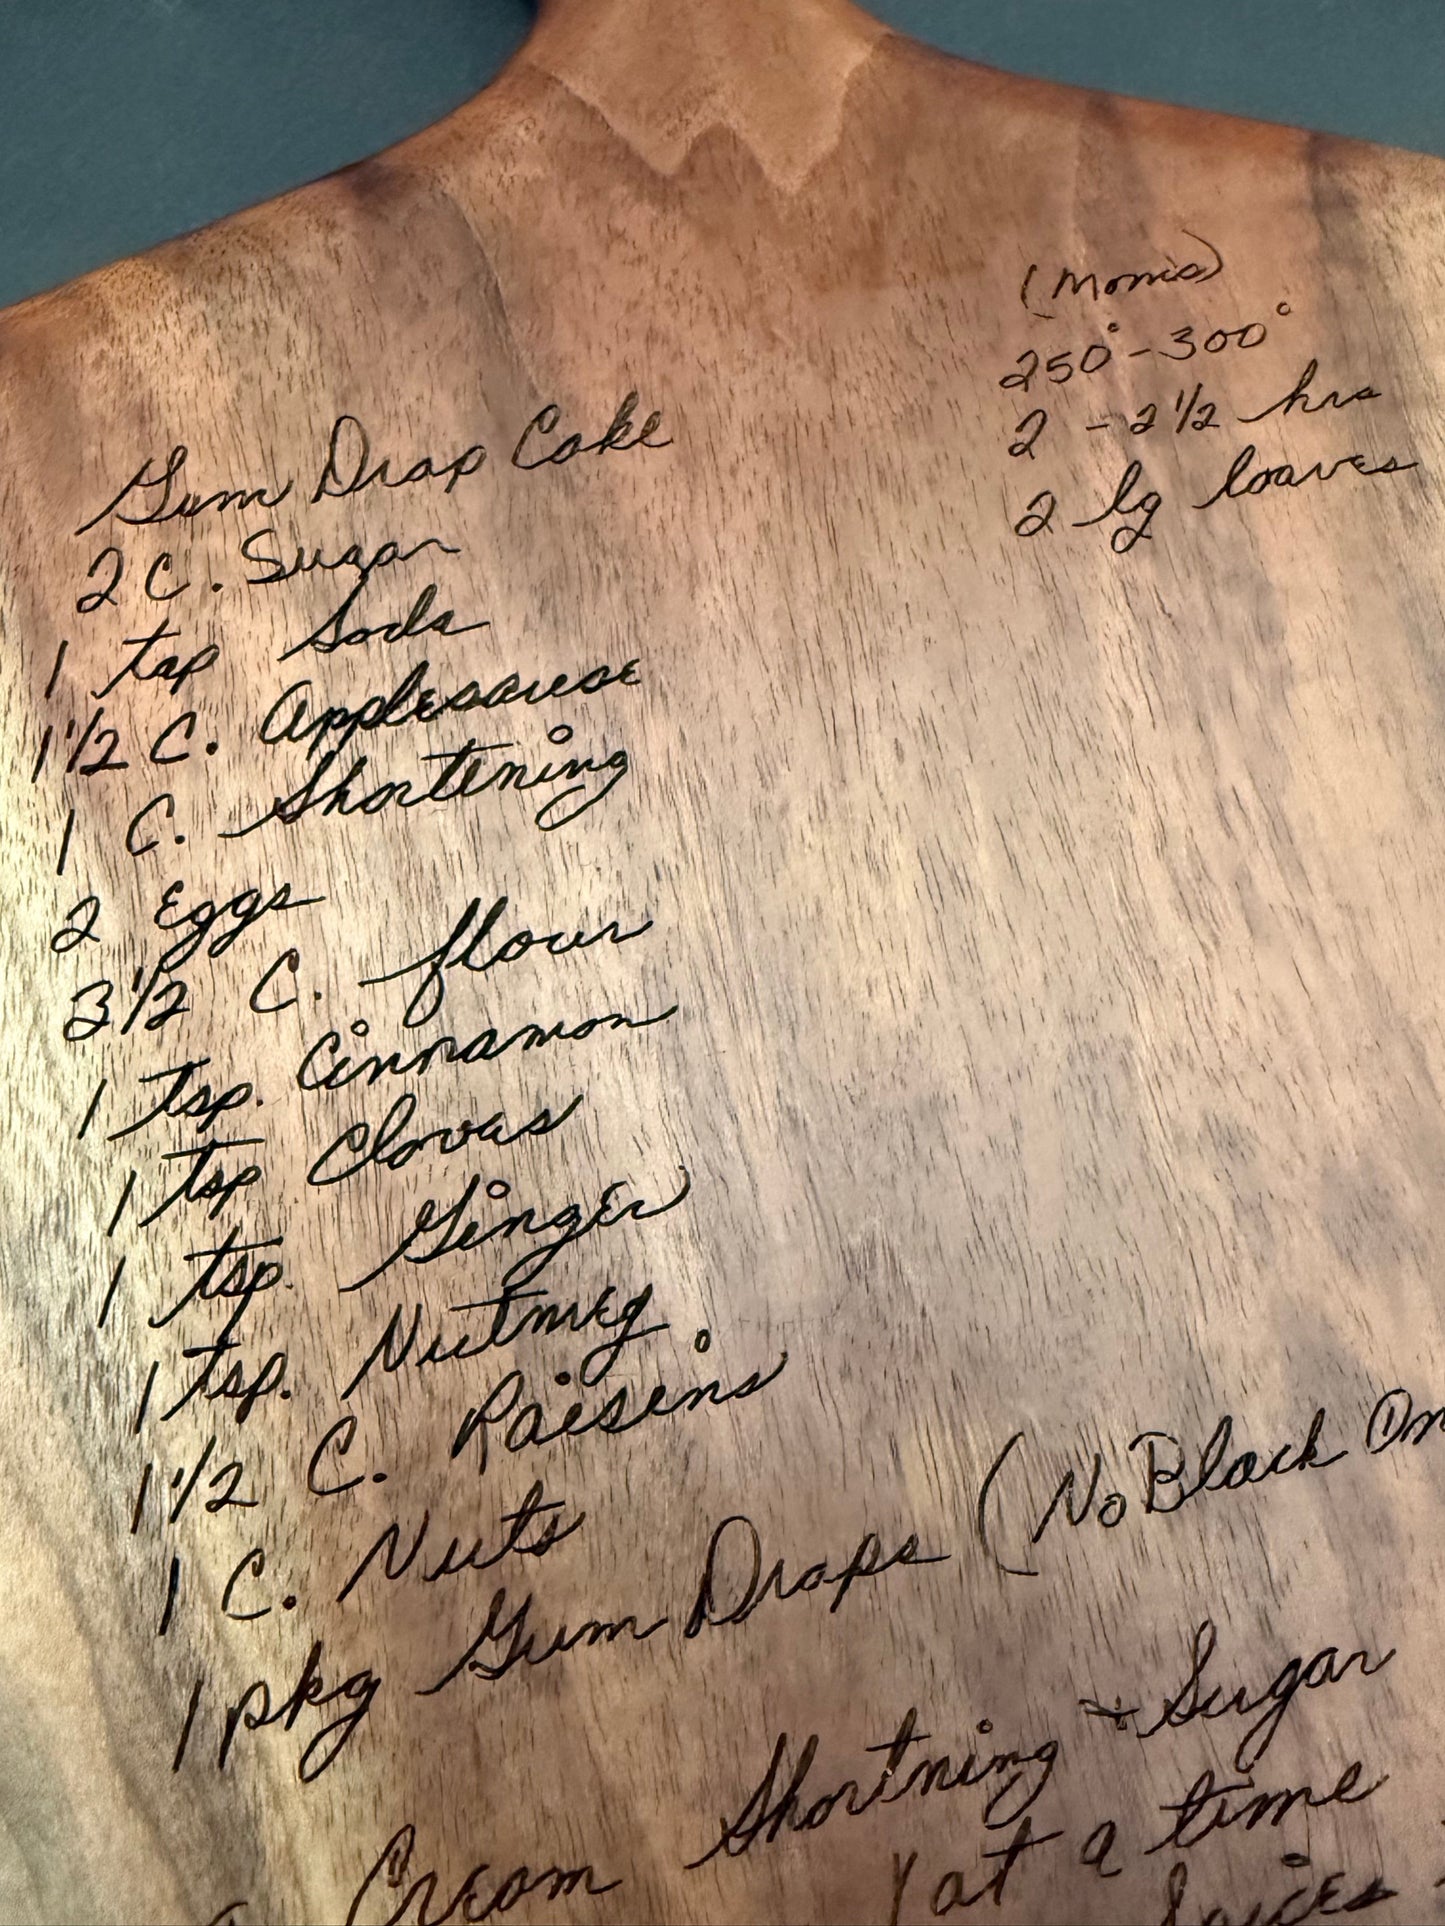 (Moms)
250° - 300°
2 - 2 1/2 hrs
2 lg loaves
Gum Drop Cake
2 C. Sugar
1 tsp Soda
1 1/2 C. Applesauce
1 C. Shortening
2 Eggs
3 1/2 C. flour
1 Tsp. Cinnamon
1 Tsp Cloves
1 tsp. Ginger
1 tsp. Nutmeg
1 1/2 C. Raisins
1 C. Nuts
1 pkg Gum Drops (No Black
Cream Shortning + Sugar
1 at a time
Spices